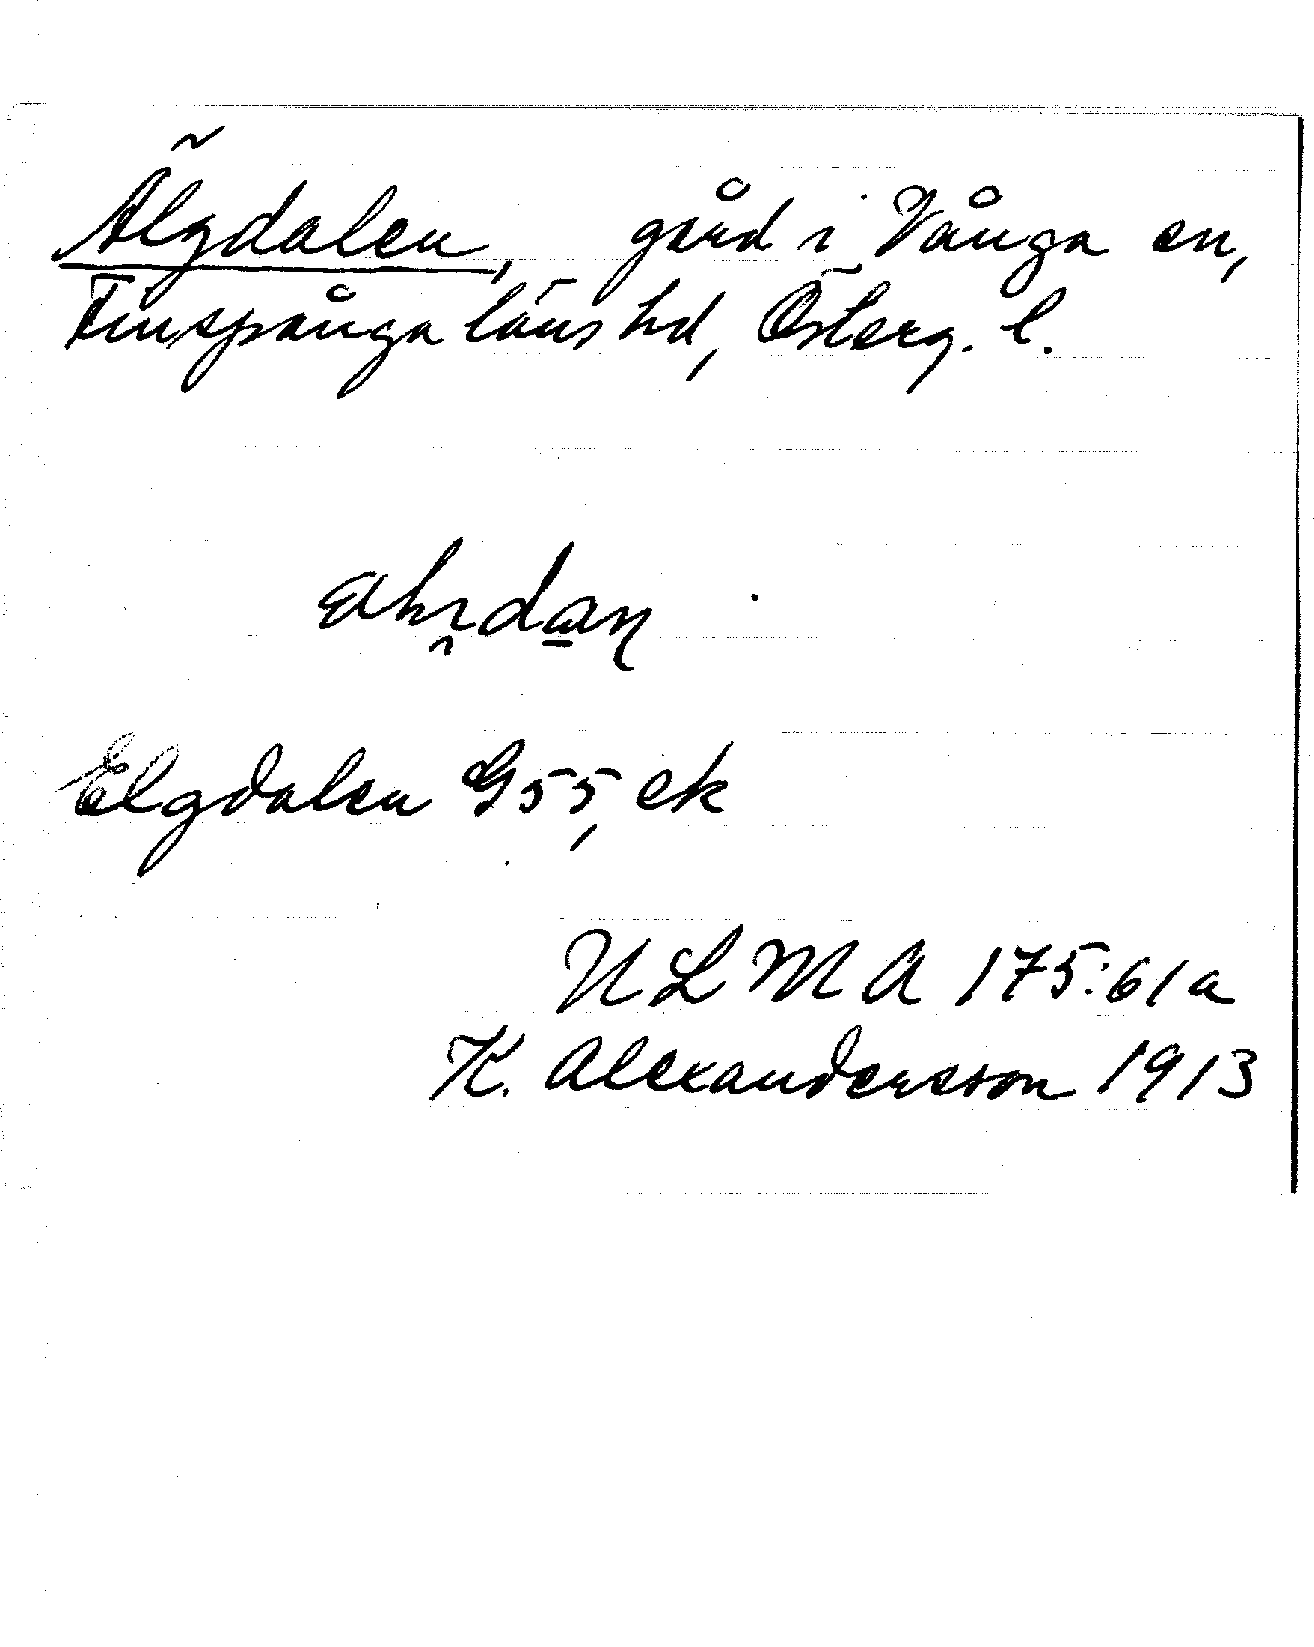 Älgdalen, gård i Vånga sn,
Finspånga läns hd, Österg. l.
Elgdalen G 55, ek
ULMA 175:61a
K. Alexandersson 1913